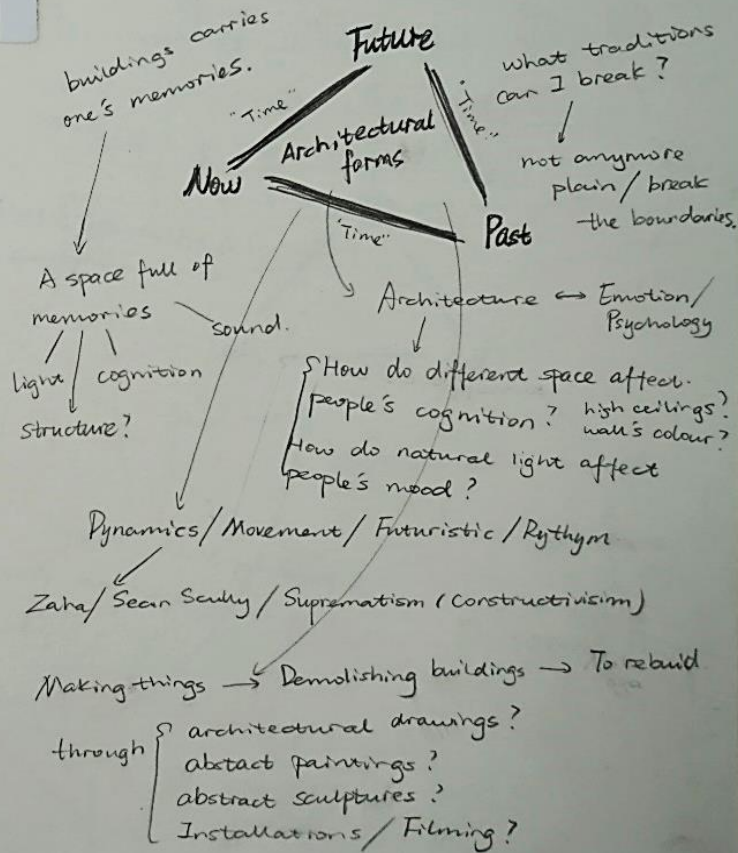 buildings carries
one's memories.
Future
what traditions
can I break?
"Time"
"Time"
Architectural
forms
not anymore
plain/break
the boundaries.
Now
"Time"
Past
A space full of
memories
sound.
light
cognition
structure?
Architecture ↔ Emotion/
Psychology
How do different space affect.
people's cognition? high ceilings?
wall's colour?
How do natural light affect
people's mood?
Dynamics/Movement/Futuristic/Rythym
Zaha/Sean Scully/Suprematism (Constructivisim)
Making things → Demolishing buildings → To rebuid
through
architectural drawings?
abstact paintings?
abstract sculptures?
Installations/Filming?